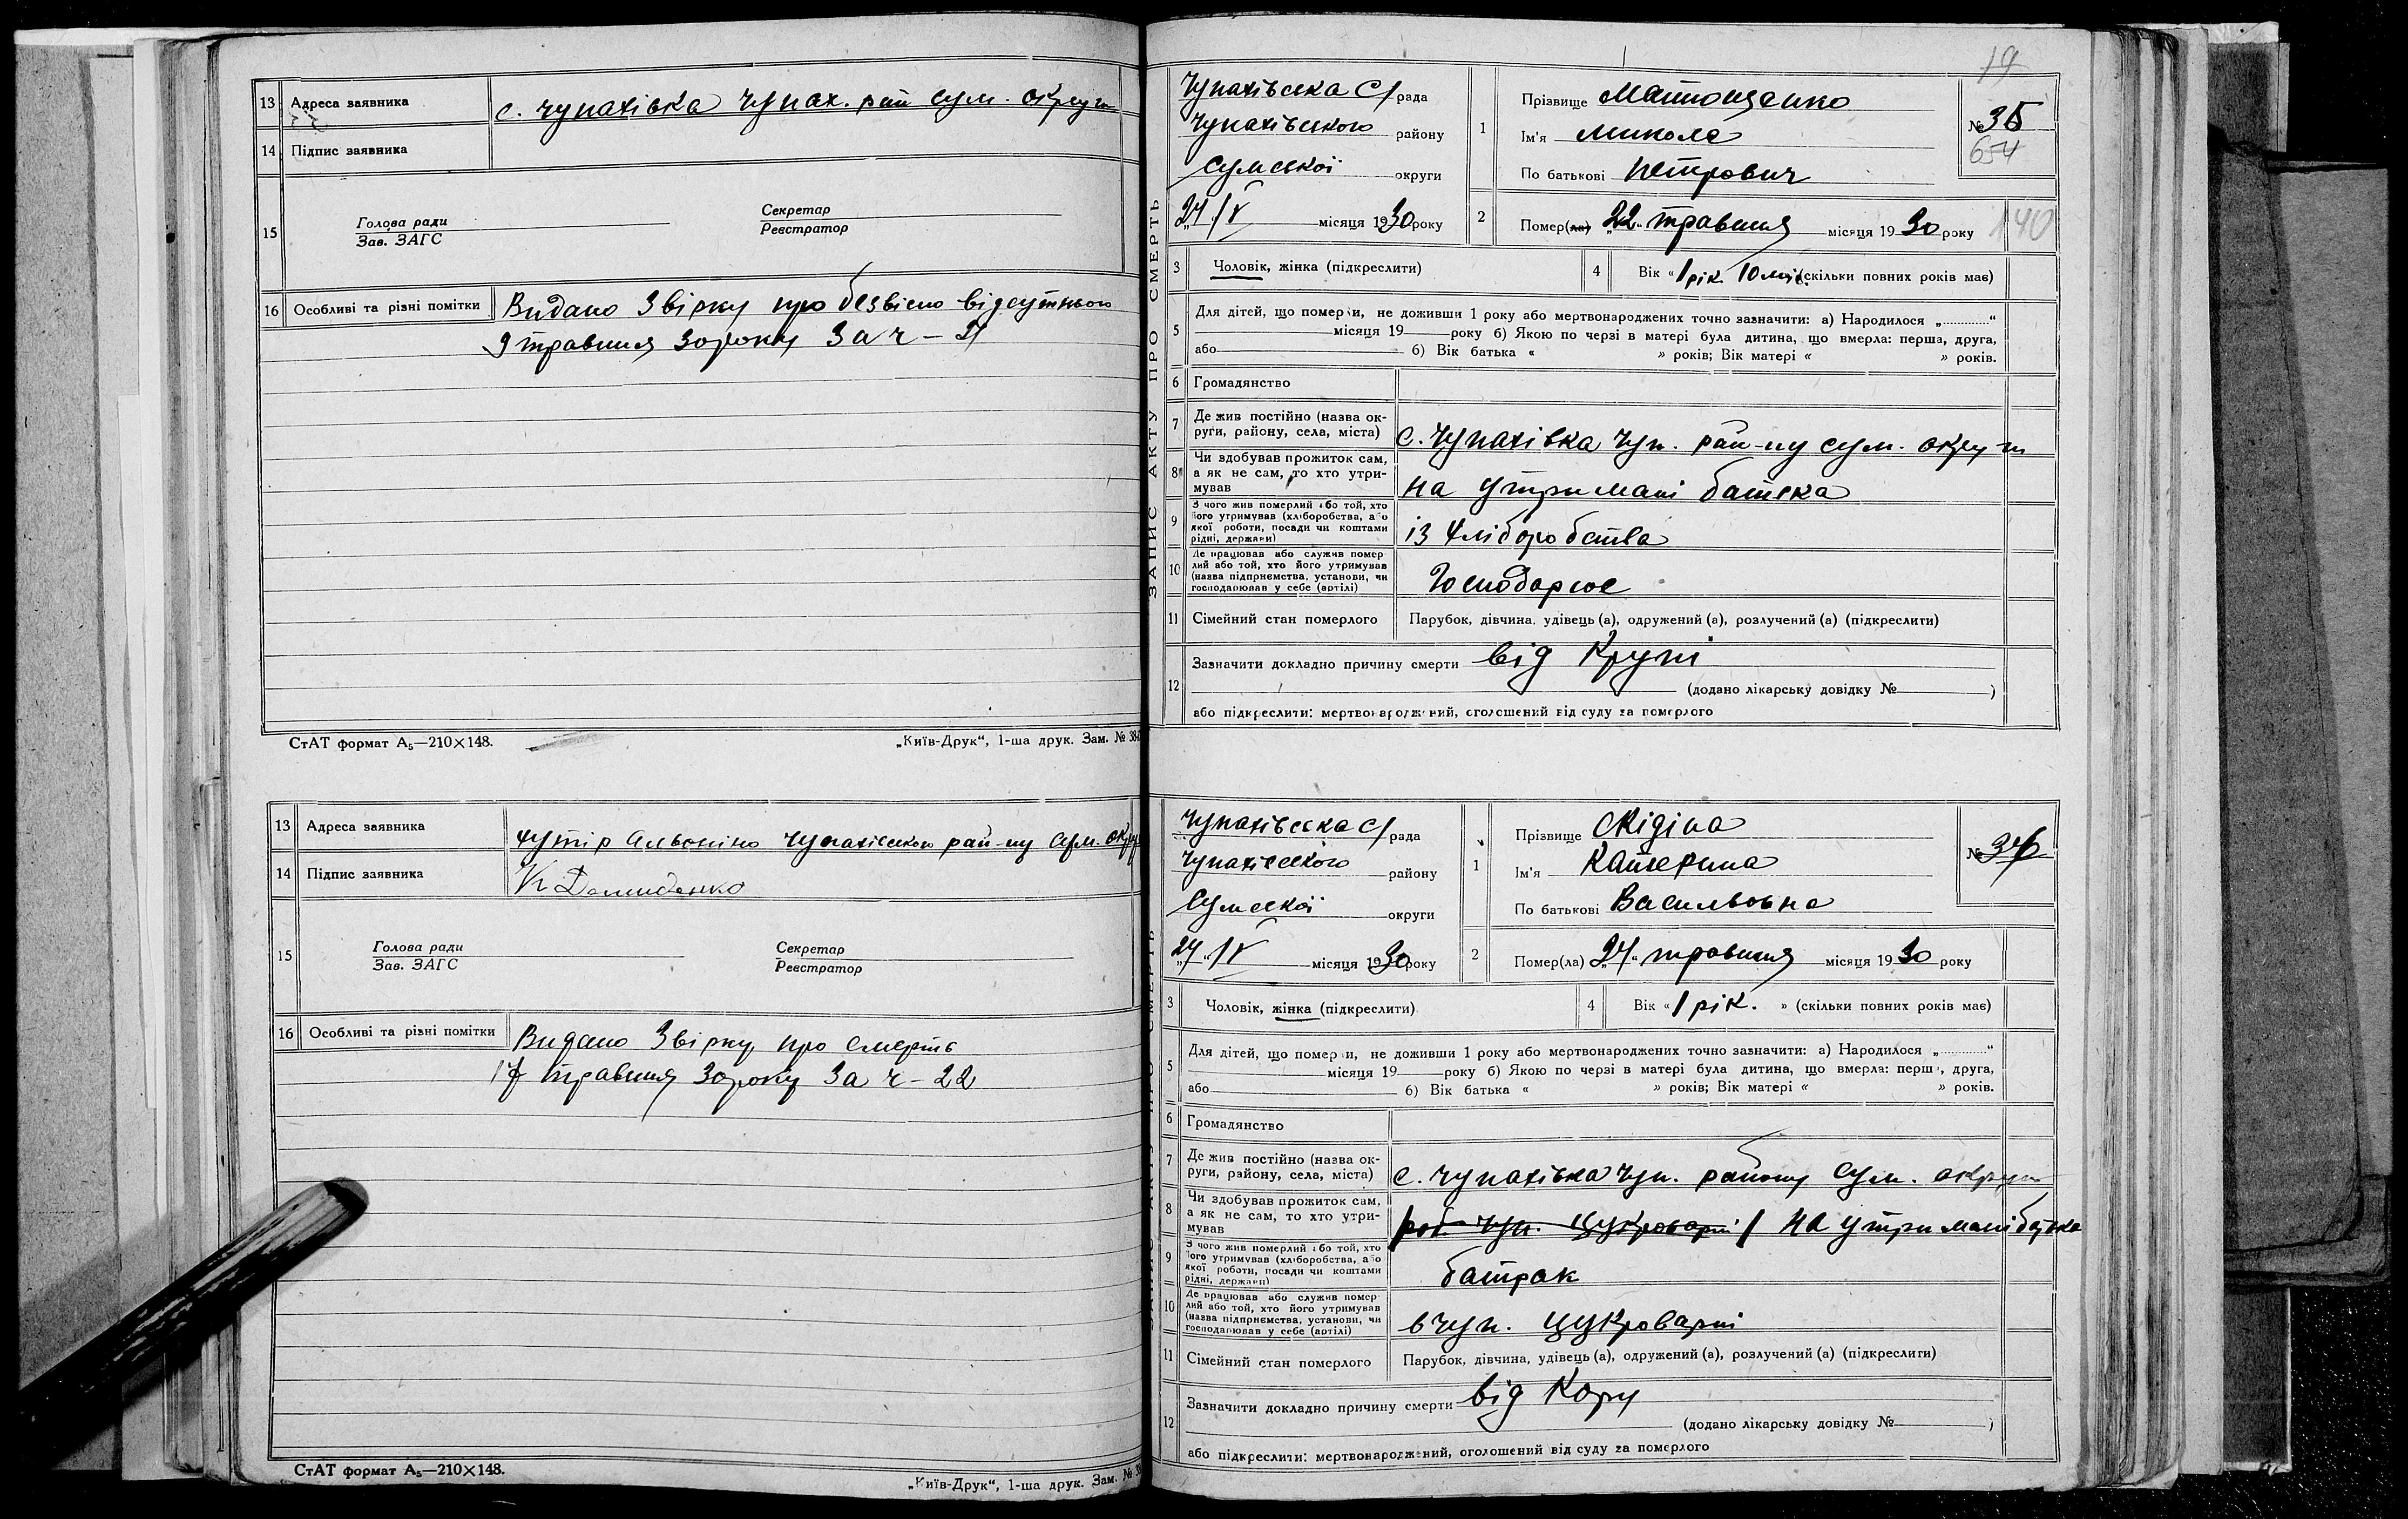 13 Адреса заявника с. Чупахівка Чупах. рай Сум. округи
14 Підпис заявника
15 Голова ради Секретар
Зав. ЗАГС Реєстратор
16 Особливі та різні помітки Видано Звірку про безвісно відсутнього
9 травния 30 року За ч – 21
СтАТ формат А₅—210×148. „Київ-Друк“, 1-ша друк. Зам. №
13 Адреса заявника хутір Чупахівского рай-ну Сум. окр
14 Підпис заявника К Демиденко
15 Голова ради Секретар
Зав. ЗАГС Реєстратор
16 Особливі та різні помітки Видано Звірку про смерть
17 травния 30 року За ч – 22
СтАТ формат А₅—210×148.
„Київ-Друк“, 1-ша друк. Зам. №
19
ЗАПИС АКТУ ПРО СМЕРТЬ
Чупахівська С/рада
Чупахівського району
Сумської округи
„24“/V місяця 1930 року
1 Прізвище Матющенко
Ім'я Микола
По батькові Петрович
№ 35
654
2 Помер(ла) „22“ травния місяця 1930 року
140
3 Чоловік, жінка (підкреслити) 4 Вік « 1 рік 10 міс. (скільки повних років має)
5 Для дітей, що померли, не доживши 1 року або мертвонароджених точно зазначити: а) Народилося „............“
місяця 19 року б) Якою по черзі в матері була дитина, що вмерла: перша, друга,
або б) Вік батька « » років; Вік матері « » років.
6 Громадянство
7 Де жив постійно (назва ок-
руги, району, села, міста) с. Чупахівка Чуп. рай-ну Сум. округи
8 Чи здобував прожиток сам,
а як не сам, то хто утри-
мував на утримані батька
9 З чого жив померлий або той, хто
його утримував (хліборобства, або
якої роботи, посади чи коштами
рідні, держави) із хліборобства
10 Де працював або служив помер
лий або той, хто його утримував
(назва підприємства, установи, чи
господарював у себе (артілі) Господарює
11 Сімейний стан померлого Парубок, дівчина, удівець (а), одружений (а), розлучений (а) (підкреслити)
12 Зазначити докладно причину смерти від Крупі
(додано лікарську довідку № )
або підкреслити: мертвонароджений, оголошений від суду за померлого
Чупахівська С/рада
Чупахівського району
Сумської округи
„24“/V місяця 1930 року
1 Прізвище Скідіна
Ім'я Катерина
По батькові Васильовна
№ 36
2 Помер(ла) „24“ травния місяця 1930 року
3 Чоловік, жінка (підкреслити) 4 Вік « 1 рік. » (скільки повних років має)
5 Для дітей, що померли, не доживши 1 року або мертвонароджених точно зазначити: а) Народилося „............“
місяця 19 року б) Якою по черзі в матері була дитина, що вмерла: перша, друга,
або б) Вік батька « » років; Вік матері « » років.
6 Громадянство
7 Де жив постійно (назва ок-
руги, району, села, міста) с. Чупахівка Чуп. району Сум. округи
8 Чи здобував прожиток сам,
а як не сам, то хто утри-
мував роб. Чуп. Цукроварні / на утримані батька
9 З чого жив померлий або той, хто
його утримував (хліборобства, або
якої роботи, посади чи коштами
рідні, держави) батрак
10 Де працював або служив помер-
лий або той, хто його утримував
(назва підприємства, установи, чи
господарював у себе (артілі) в Чуп. Цукроварні
11 Сімейний стан померлого Парубок, дівчина, удівець (а), одружений (а), розлучений (а) (підкреслити)
12 Зазначити докладно причину смерти від Кору
(додано лікарську довідку № )
або підкреслити: мертвонароджений, оголошений від суду за померлого